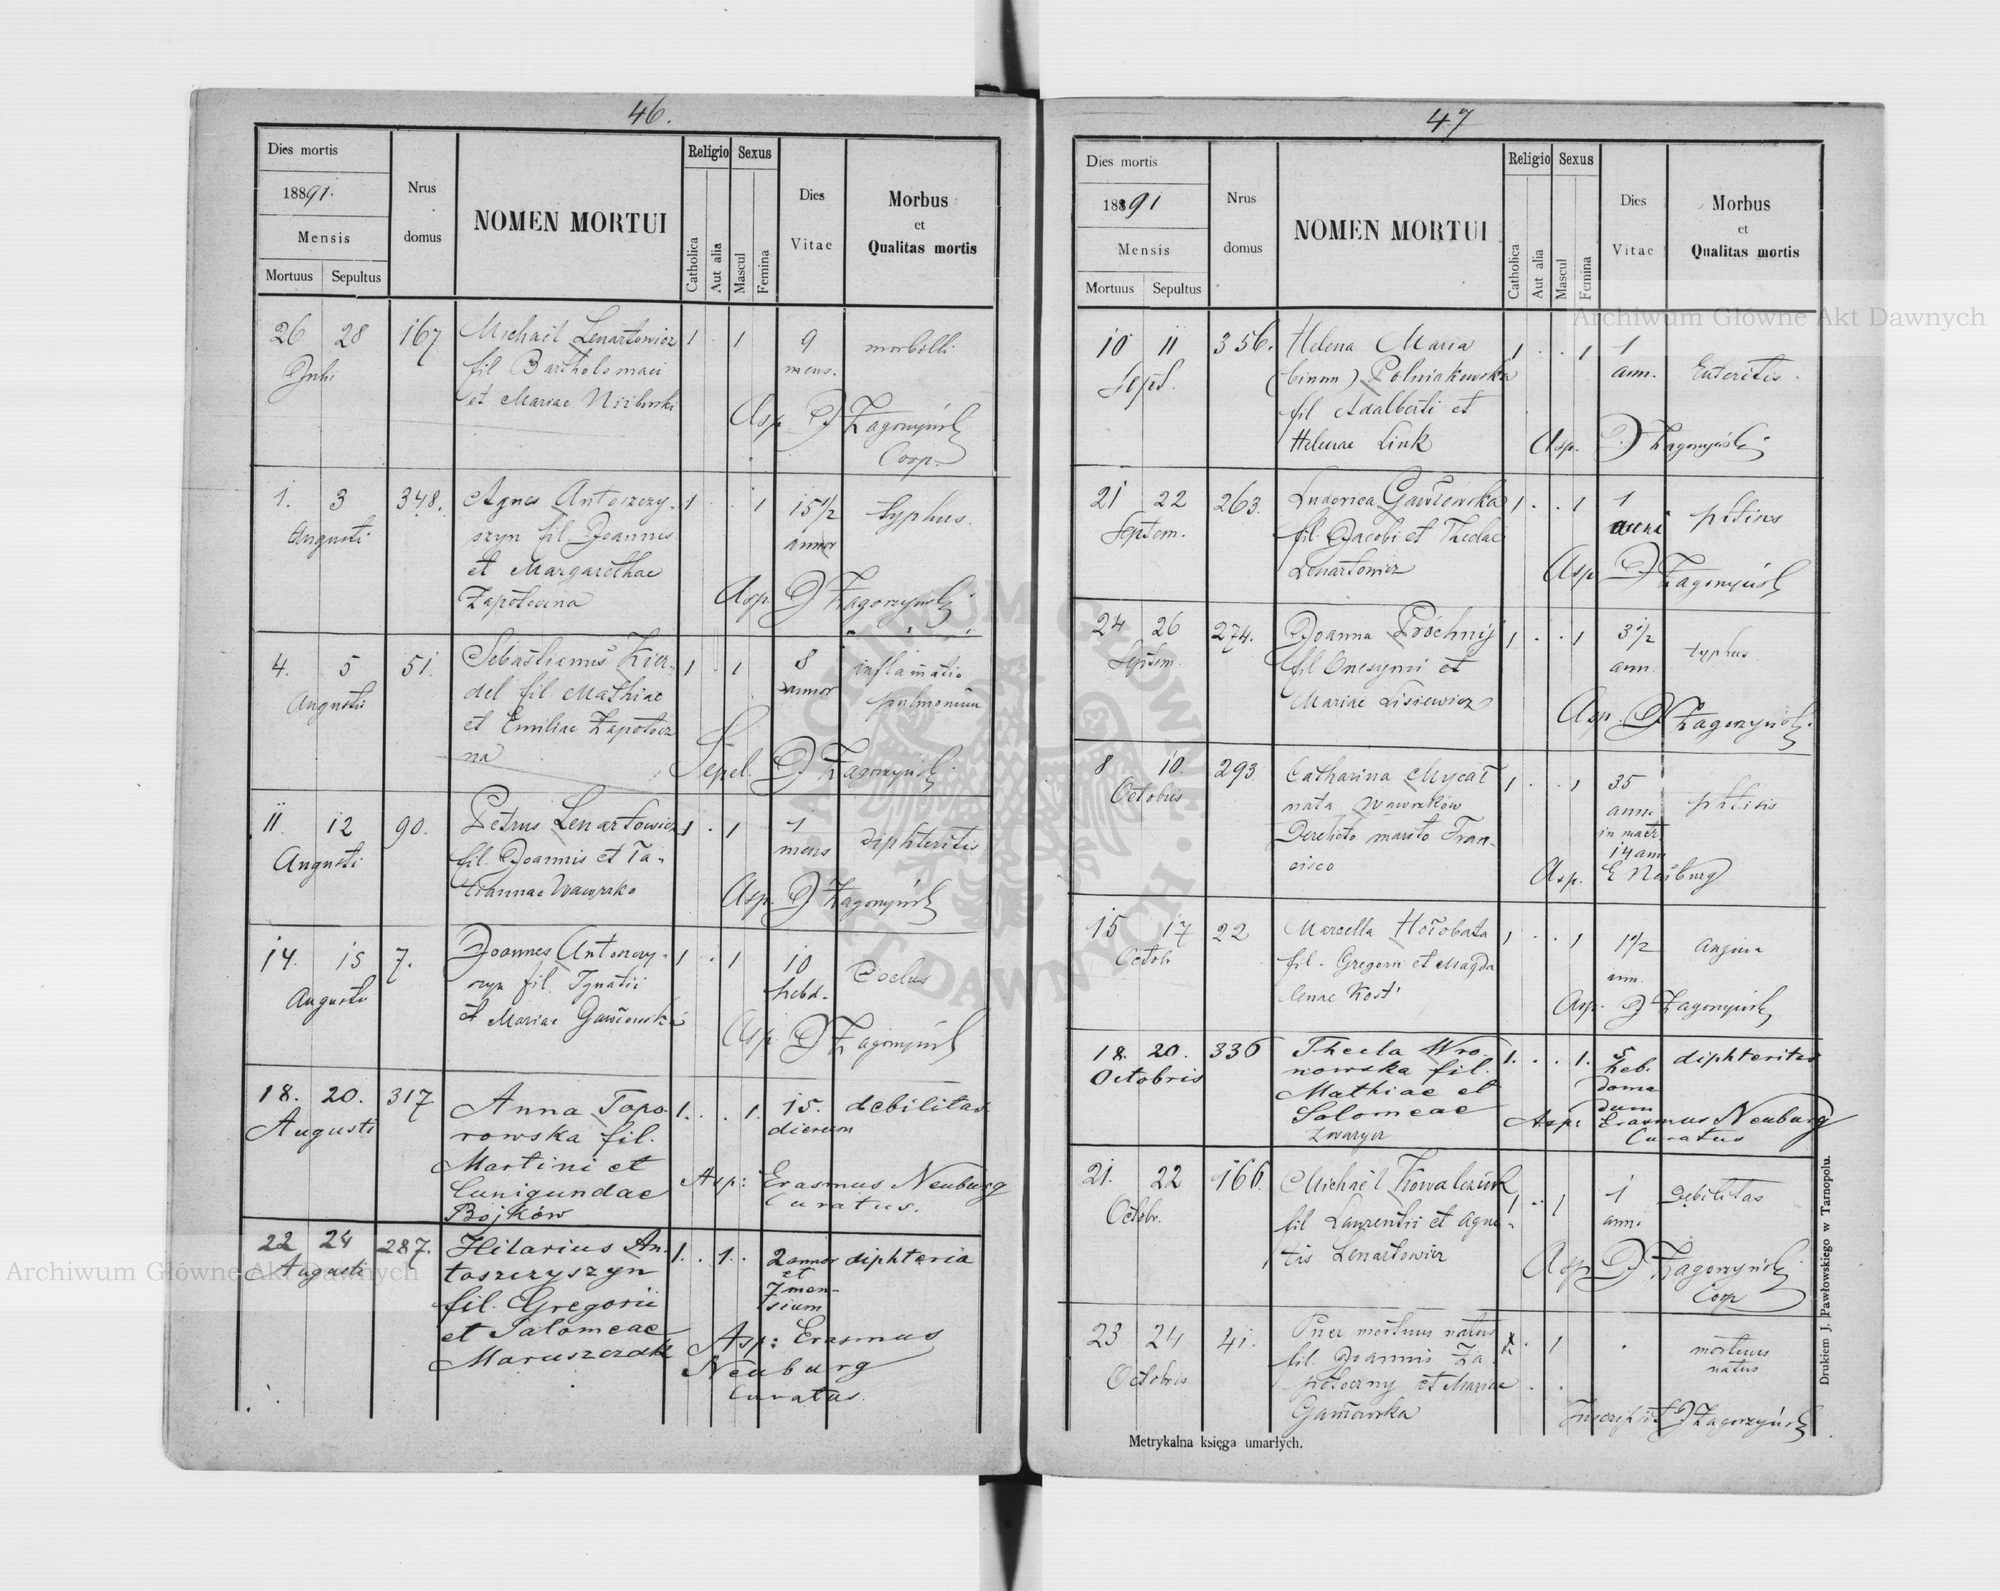 46.
Dies mortis
1891.
Mensis
Mortuus Sepultus
Nrus
domus
NOMEN MORTUI
Religio
Catholica
Aut alia
Sexus
Mascul
Femina
Dies
Vitae
Morbus
et
Qualitas mortis
26 28 167 Michaël Lenartowicz 1 . 1 9 morbilli
Julii fil Bartholomaei mens.
et Mariae
Asp. D Zagorzyński
Coop.
1. 3 348. Agnes Antoszczy- 1 . . 1 15 1/2 typhus.
Augusti szyn fil Joannis annor
et Margarethae
Zapotoczna
Asp. D Zagorzyński
4. 5 51. Sebastianus Kier- 1 . 1 8 inflamatio
Augusti del fil Mathiae annor pulmonium
et Emiliae Zapotocz
na
Sepel. D Zagorzyński
11. 12 90. Petrus Lenartowicz 1 . 1 1 diphteritis
Augusti fil. Joannis et Ta- mens
tiannae Wawrzko
Asp. D Zagorzyński
14. 15 7. Joannes Antonczy- 1 . 1 10
Augusti szyn fil. Ignatii hebd.
et Mariae Gawłowska
Asp D Zagorzyński
18. 20. 317 Anna Topo- 1. . . 1. 15. debilitas
Augusti rowska fil. dierum
Martini et
Cunigundae
Bojków
Asp: Erasmus Neuburg
Curatus.
22 24 287. Hilarius An- 1. . 1. . 2 annor diphteria
Augusti toszczyszyn et
fil. Gregorii 7 men-
et Salomeae sium
Maruszczak
Asp: Erasmus
Neuburg
Curatus.
47
Dies mortis
1891
Mensis
Mortuus Sepultus
Nrus
domus
NOMEN MORTUI
Religio
Catholica
Aut alia
Sexus
Mascul
Femina
Dies
Vitae
Morbus
et
Qualitas mortis
10 11 356. Helena Maria 1 . . 1 1 Enteritis.
Sept. (binom) Polniakowska ann.
fil Adalberti et
Helenae Link
Asp. D Zagorzyński
21 22 263. Ludovica Gawłowska 1 . . 1 1 phtisis
Septem. fil. Jacobi et Theclae anni
Lenartowicz
Asp D Zagorzyński
24 26 274. Joanna Próchnij 1 . . 1 3 1/2 typhus
Septem. fil Onesymi et ann.
Mariae Lisiewicz
Asp. D Zagorzyński
8 10. 293 Catharina Mycał 1 . . 1 35 phtisis
Octobris nata Wawrzków ann.
Derelicto marito Fran- in matr
cisco 14 ann
Asp. E Neuburg
15 17 22 Marcella Horobata 1 . . 1 1 1/2 angina
Octob fil. Gregorii et Magda ann.
lenae Kost
Asp. D Zagorzyński
18. 20. 336 Thecla Wro- 1. . . 1. 5 diphteritis
Octobris nowska fil. heb.
Mathiae et doma
Salomeae dum
Zwaryer
Asp: Erasmus Neuburg
Curatus
21. 22 166. Michaël Kowalczuk 1 . 1 1 Debilitas
Octobr. fil Laurentii et Agne- anni
tis Lenartowicz
Asp D. Zagorzyński
Coop
23 24 41. Puer mortuus natus 1 . 1 . mortuus
Octobris fil. Joannis Za- natus
potoczny et Mariae
Gawłowska
Inscripsit D Zagorzyński
Metrykalna księga umarłych.
Drukiem J. Pawłowskiego w Tarnopolu.
Archiwum Główne Akt Dawnych
Archiwum Główne Akt Dawnych
ARCHIWUM GŁÓWNE AKT DAWNYCH